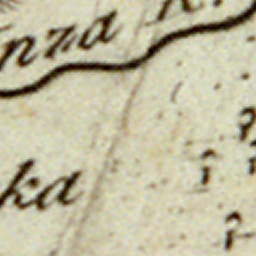 nza R.
ka